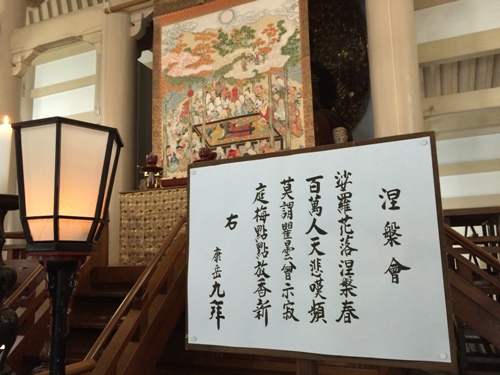 涅槃會
娑羅花落涅槃春
百萬人天悲嘆頻
莫謂瞿曇曾示寂
庭梅點點放香新
右
康岳九拜